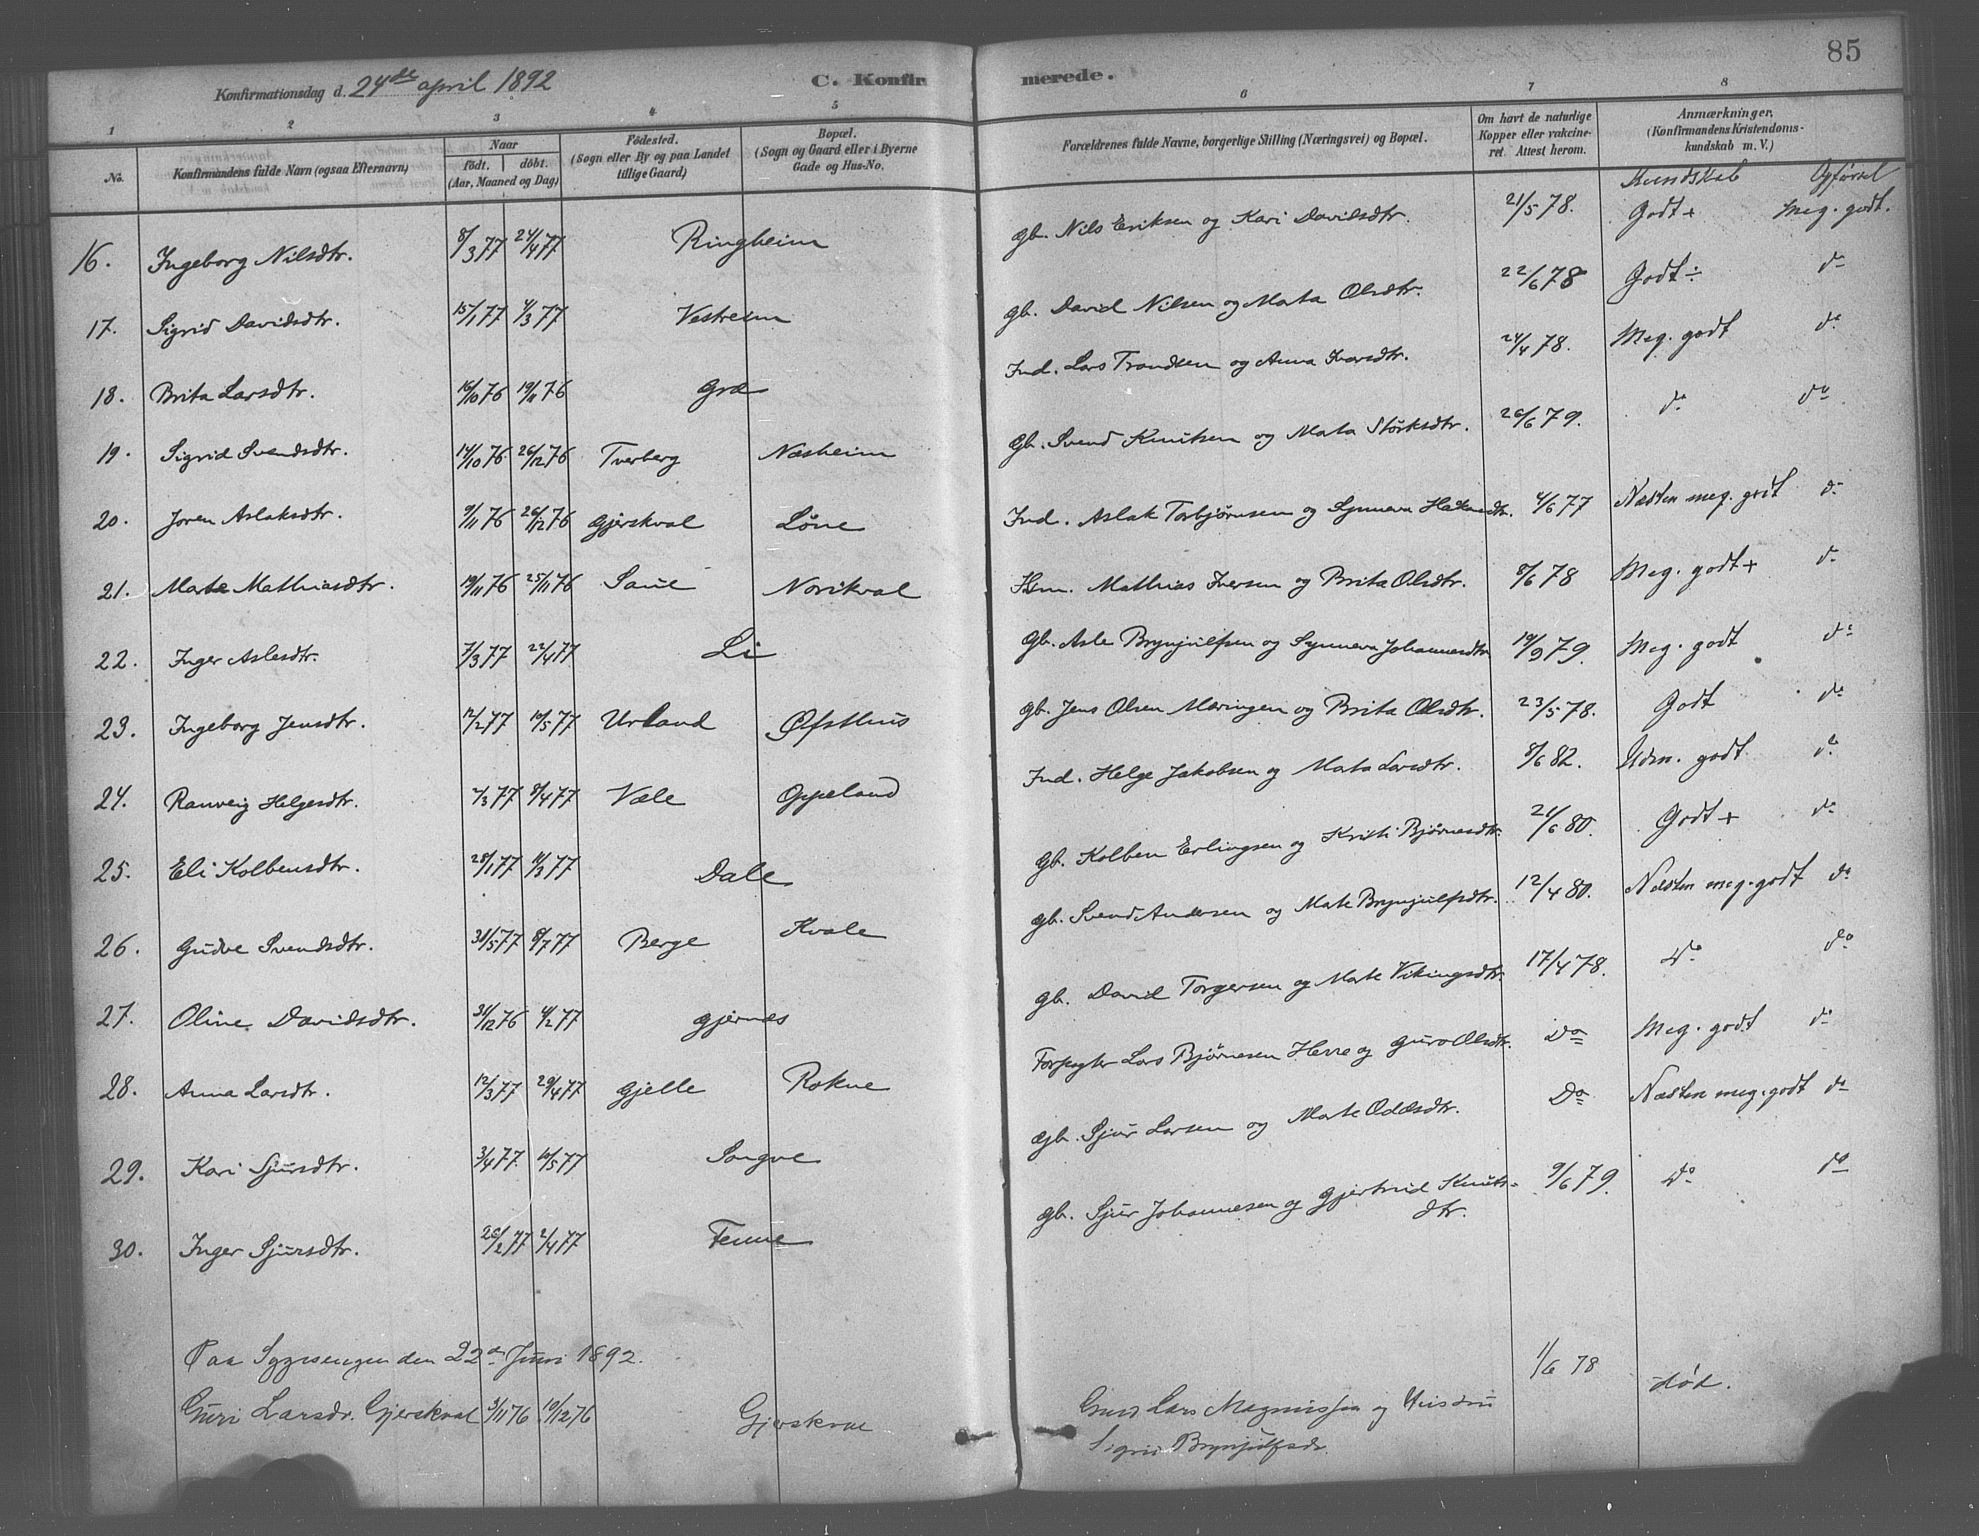 85
Konfirmationsdag d. 24de april 1892
C. Konfirmerede.
1 2 3 4 5 6 7 8
No. Konfirmandens fulde Navn (ogsaa Efternavn) Naar født. døbt. (Aar, Maaned og Dag) Fødested. (Sogn eller By og paa Landet tillige Gaard) Bopæl. (Sogn og Gaard eller i Byerne Gade og Hus-No. Forældrenes fulde Navne, borgerlige Stilling (Næringsvei) og Bopæl. Om havt de naturlige Kopper eller vakcineret Attest herom. Anmærkninger. (Konfirmandens Kristendomskundskab m. V.)
Kundskab Opførsel
16. Ingeborg Nilsdtr. 8/3 77 24/4 77 Ringheim Gb. Nils Eriksen og Kari Davidsdtr. 21/5 78. Godt + Meg. godt.
17. Sigrid Davidsdtr. 15/1 77 4/3 77 Vestreim Gb. David Nilsen og Marta Olsdtr. 22/6 78 Godt ÷ do
18. Brita Larsdtr. 16/10 76 19/11 76 Gra Ind. Lars Trondsen og Anna Ivarsdtr. 24/4 78. Meg. godt do
19. Sigrid Svendsdtr. 14/10 76 26/12 76 Tverberg Næsheim Gb. Svend Knutsen og Marta Størksdtr. 26/6 79. do do
20. Joren Aslaksdtr. 9/11 76 26/12 76 Gjerskval Løne Ind. Aslak Torbjørnsen og Synneva 4/6 77 Næsten meg. godt do
21. Marta Mathiasdtr. 19/11 76 25/11 76 Saue Norikval Hsm. Mathias Iversen og Brita Olsdtr. 8/6 78 Meg. godt + do
22. Inger Aslesdtr. 7/3 77 22/4 77 Li Gb. Asle Brynjulfsen og Synneva Johannesdtr 19/9 79. Meg. godt do
23. Ingeborg Jensdtr. 12/2 77 10/5 77 Urland Øfsthus Gb. Jens Olsen Mæringen og Brita Olsdtr. 23/5 78. Godt do
24. Ranveig Helgesdtr. 7/3 77 8/4 77 Væle Oppeland Ind. Helge Jakobsen og Marta Larsdtr. 8/6 82. Udm. godt do
25. Eli Kolbensdtr. 28/1 77 11/3 77 Dale Gb. Kolben Erlingsen og Kristi Bjørnesdtr. 21/6 80. Godt + do
26. Gudve Svendsdtr. 31/5 77 8/7 77 Berge Kvale Gb. Svend Andersen og Marta Brynjulfsdtr. 12/4 80. Næsten meg. godt do
27. Oline Davidsdtr. 31/12 76 4/2 77 Gjernes Gb. David Torgersen og Marta Vikingsdtr. 17/4 78. do do
28. Anna Larsdtr. 12/3 77 29/4 77 Gjelle Rokne Forpagter Lars Bjørnesen Herre og Guro Olsdtr. Do Meg. godt do
29. Kari Sjursdtr. 3/4 77. 10/5 77 Songve Gb. Sjur Larsen og Marta Oddsdtr. Do Næsten meg. godt do
30. Inger Sjursdtr. 26/2 77 2/4 77 Fenne Gb. Sjur Johannesen og Gjertrud Knuts- 9/6 79. do do
dtr.
Paa Sygesengen den 22de Juni 1892.
Guri Larsdr. Gjerskval 3/11 76 10/12 76 Gjerskval Lars Magnussen og Hustru 1/6 78 død.
Sigrid Brynjulfsdr.